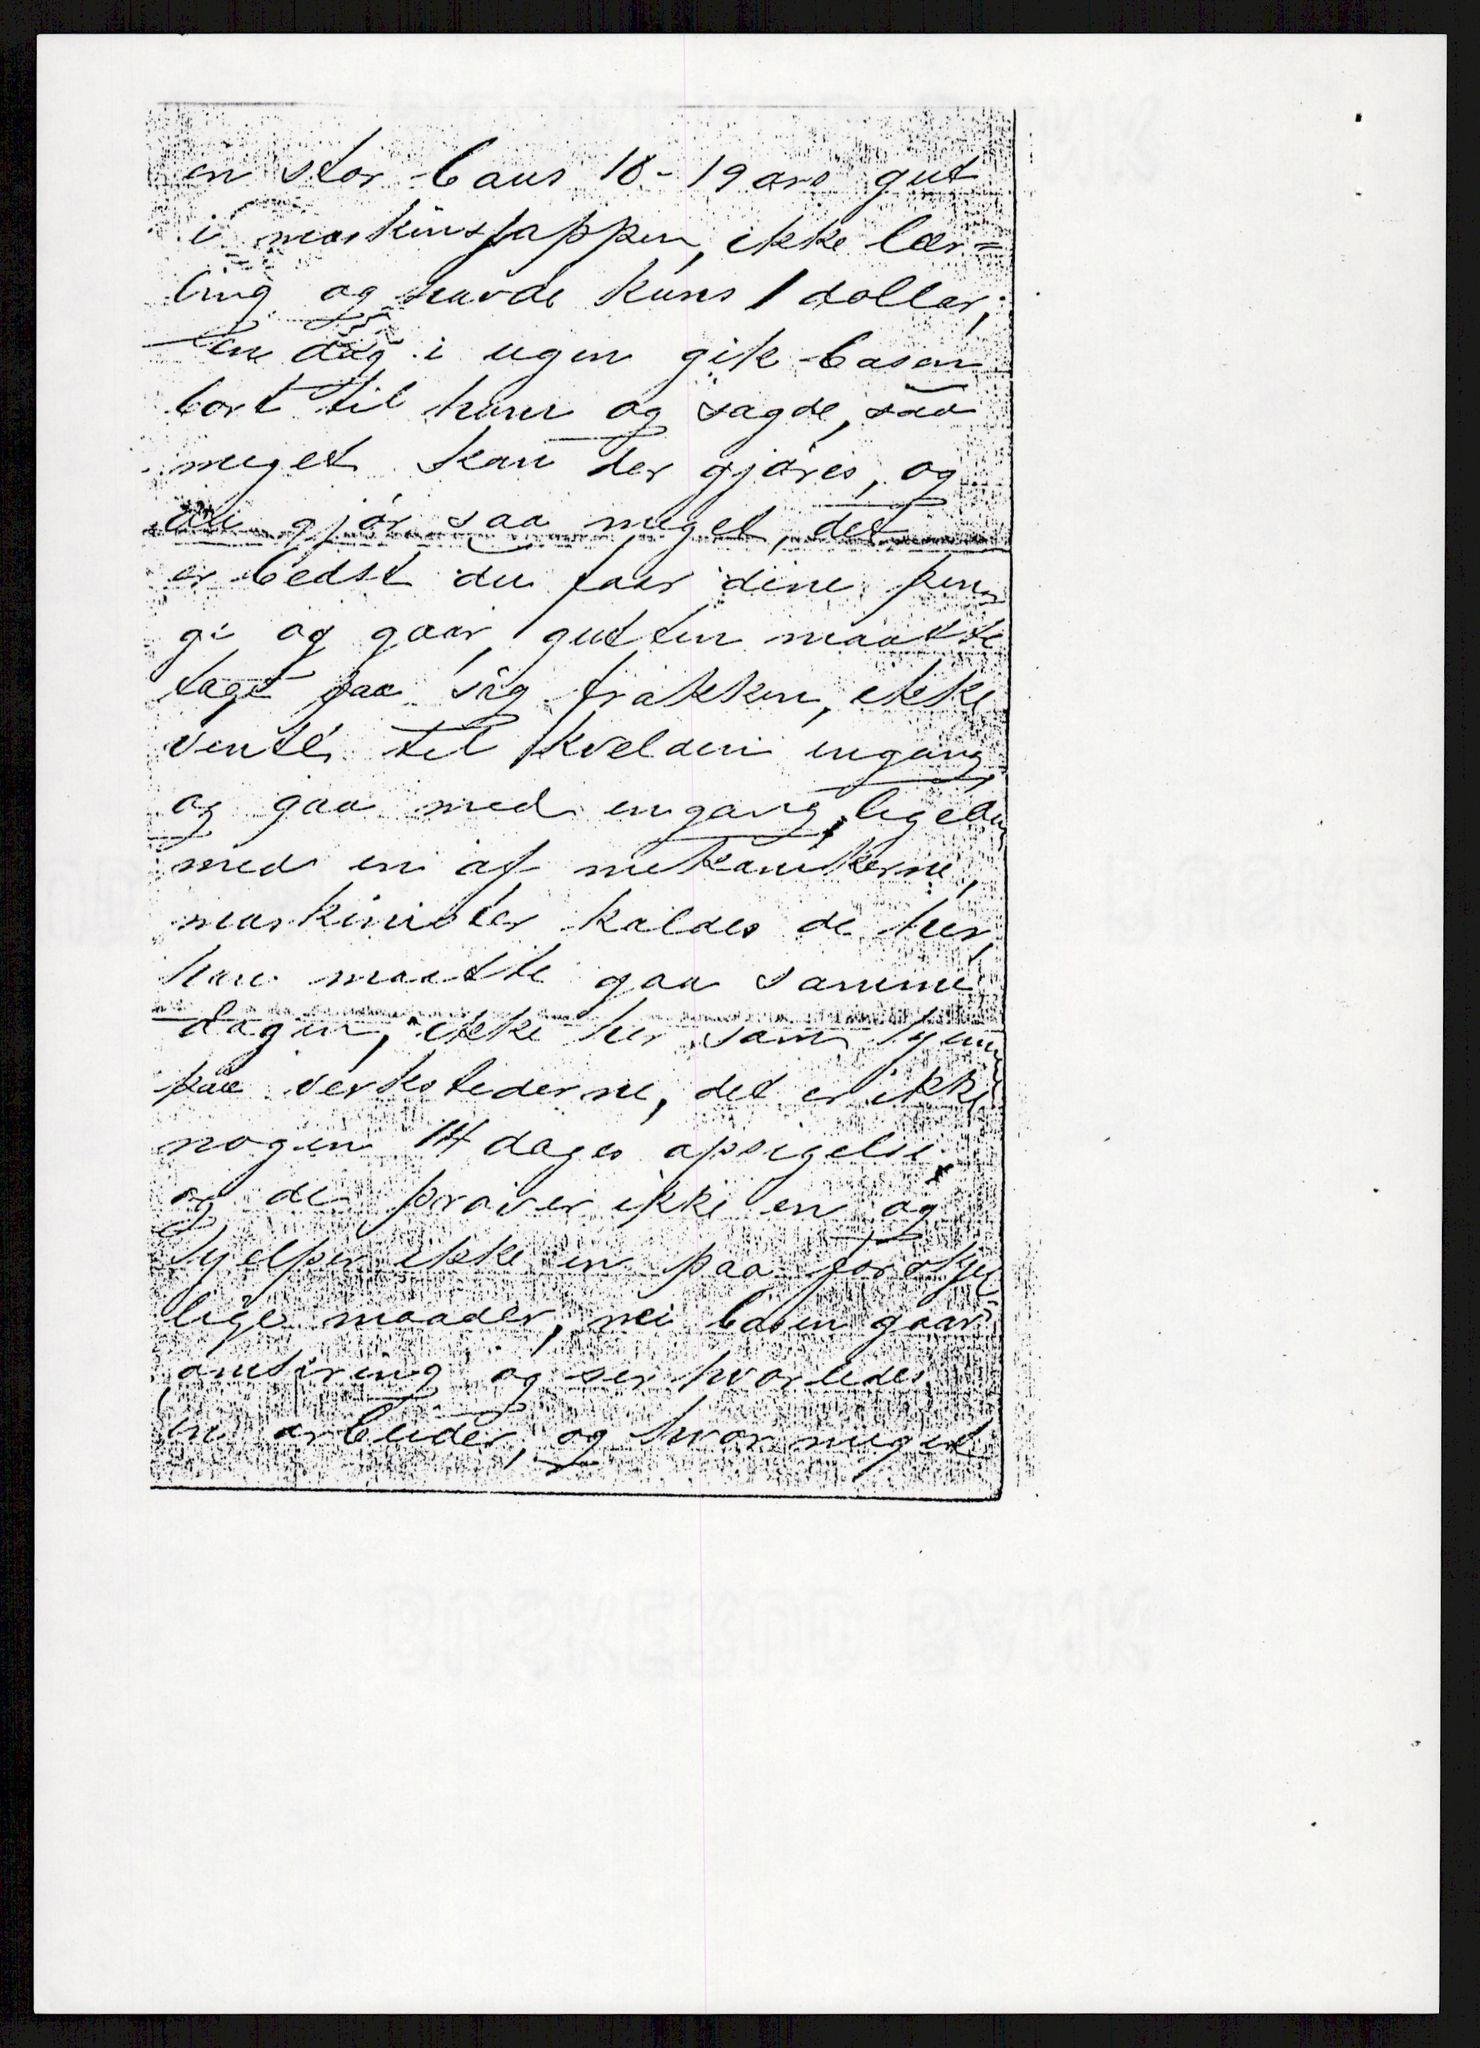 en stor baus 18-19 aars gut
i maskinsjappen, ikke lær=
ling og havde kuns 1 dollar,
en dag i ugen gik basen
bort til ham og sagde, saa
meget kan der gjøres, og
du gjør saa meget, det
er bedst du faar dine pen
ge og gaar, gutten maatte
tage paa sig frakken, ikke
vente til kvelden engang,
og gaa med engang, ligeledes
med en af mekanikerne,
maskinister kaldes de her,
han maatte gaa samme
dagen, ikke her som hjemme
paa verkstederne, det er ikke
nogen 14 dages opsigelse,
og de prøver ikke en og
hjelper ikke en paa forskjel
lige maader, nei basen gaar
omkring og ser hvorledes
en arbeider, og hvor meget